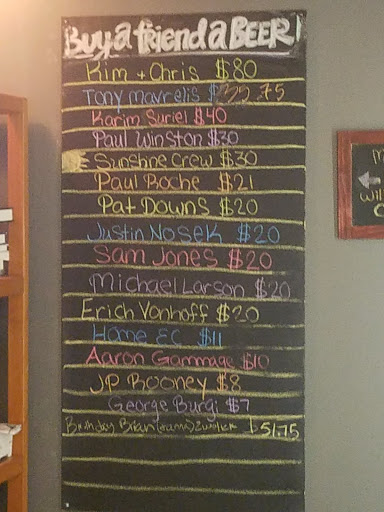 Buy a friend a BEER!
Kim + Chris $80
Tony Mavrelis $ .75
Karim Suriel $40
Paul Winston $30
Sunshine Crew $30
Paul Roche $21
Pat Downs $20
Justin Nosek $20
Sam Jones $20
Michael Larson $20
Erich Vonhoff $20
Home EC $11
Aaron Gammage $10
JP Rooney $8
George Burgi $7
Brian $51.75
M
will